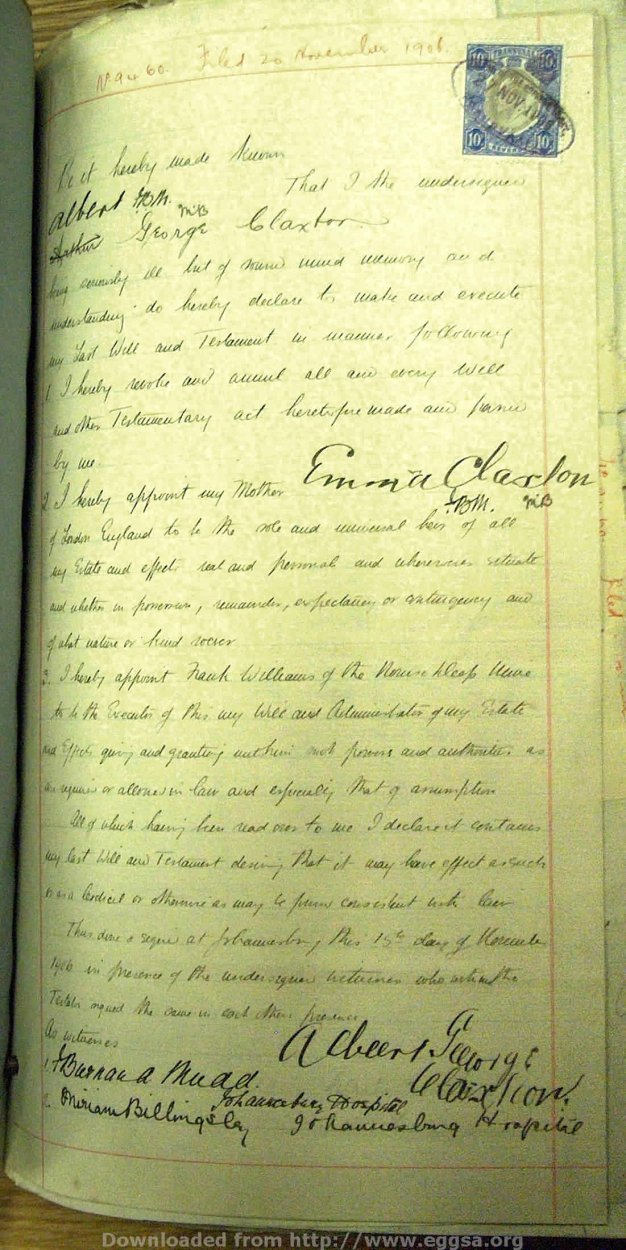 Filed 20 November 1906.
TRANSVAAL
10 10
NOV
10 10
REVENUE
Be it hereby made known
That I the undersigned
Albert FBM.
Arthur George MB Claxton
being seriously ill but of sound mind memory and
understanding do hereby declare to make and execute
my Last Will and Testament in manner following
1. I hereby revoke and annul all and every Will
and other Testamentary act heretofore made and passed
by me.
2. I hereby appoint my Mother Emma Claxton
FBM. MB
of London England to be the sole and universal heir of all
my Estate and effects real and personal and wheresoever situate
and whether in possession, remainder, expectancy or contingency and
of what nature or kind soever
3. I hereby appoint Frank Williams of the Mine
to be the Executor of this my Will and Administrator of my Estate
and Effects giving and granting unto him such powers and authorities as
are required or allowed in law and especially that of assumption
All of which having been read over to me I declare it contains
my last Will and Testament desiring that it may have effect as such
or as a Codicil or otherwise as may be found consistent with law
Thus done & signed at Johannesburg this 15th day of November
1906 in presence of the undersigned witnesses who with the
Testator signed the same in each others presence
As witnesses
Albert George
Claxton.
1. Mudd. Johannesburg Hospital
2. Miriam Billingsley Johannesburg Hospital
Downloaded from http://www.eggsa.org